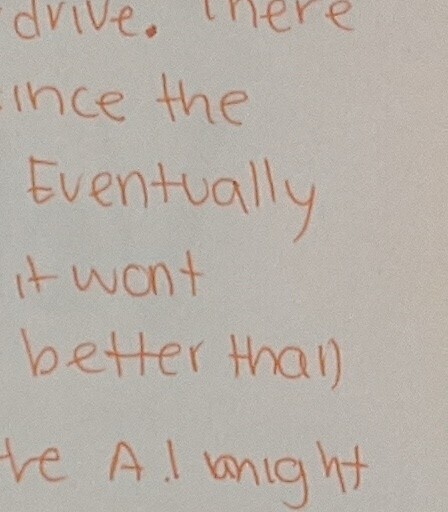 drive. There
ince the
Eventually
it wont
better than
A.I